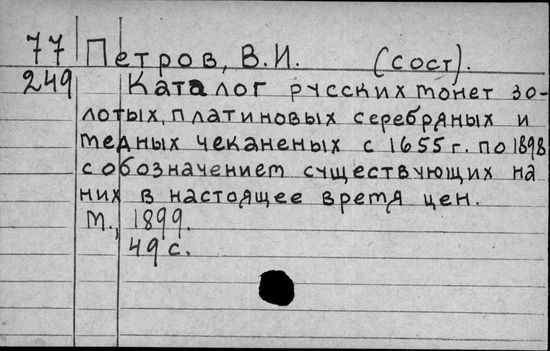 77 Петров, В.И. (сост).
249 Каталог русских монет зо-
лотых, платиновых серебряных и
медных чеканеных с 1655 г. по 1898
с обозначением существующих на
них в настоящее время цен.
М., 1899.
49 с.